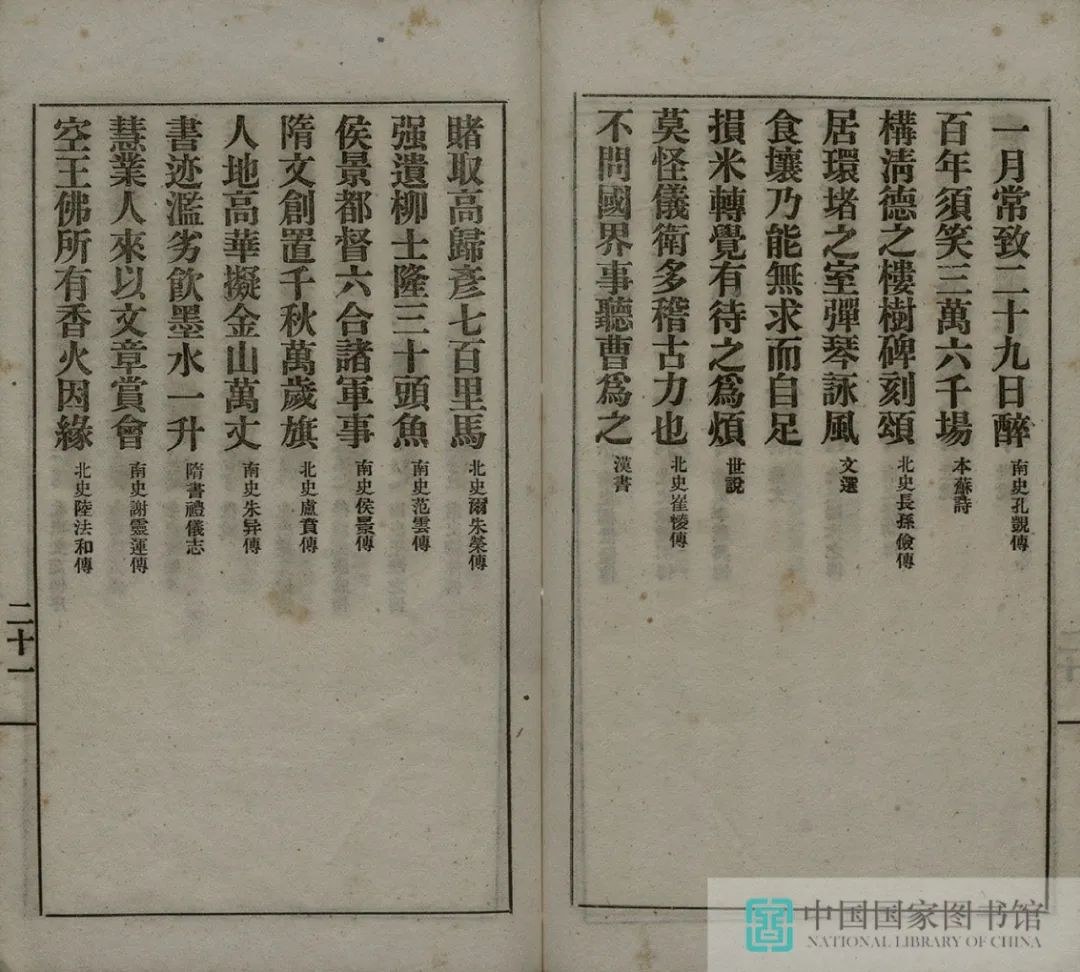 一月常致二十九日醉 南史孔覬傳
百年須笑三萬六千場 本蘇詩
構淸德之樓樹碑刻頌 北史長孫儉傳
居環堵之室彈琴詠風 文選
食壤乃能無求而自足
損米轉覺有待之爲煩 世說
莫怪儀衛多稽古力也 北史崔㥄傳
不問國界事聽曹爲之 漢書
賭取高歸彥七百里馬 北史爾朱榮傳
强遺柳士隆三十頭魚 南史范雲傳
侯景都督六合諸軍事 南史侯景傳
隋文創置千秋萬歲旗 北史盧賁傳
人地高華擬金山萬丈 南史朱异傳
書迹濫劣飮墨水一升 隋書禮儀志
慧業人來以文章賞會 南史謝靈運傳
空王佛所有香火因緣 北史陸法和傳
二十一
中国国家图书馆
NATIONAL LIBRARY OF CHINA